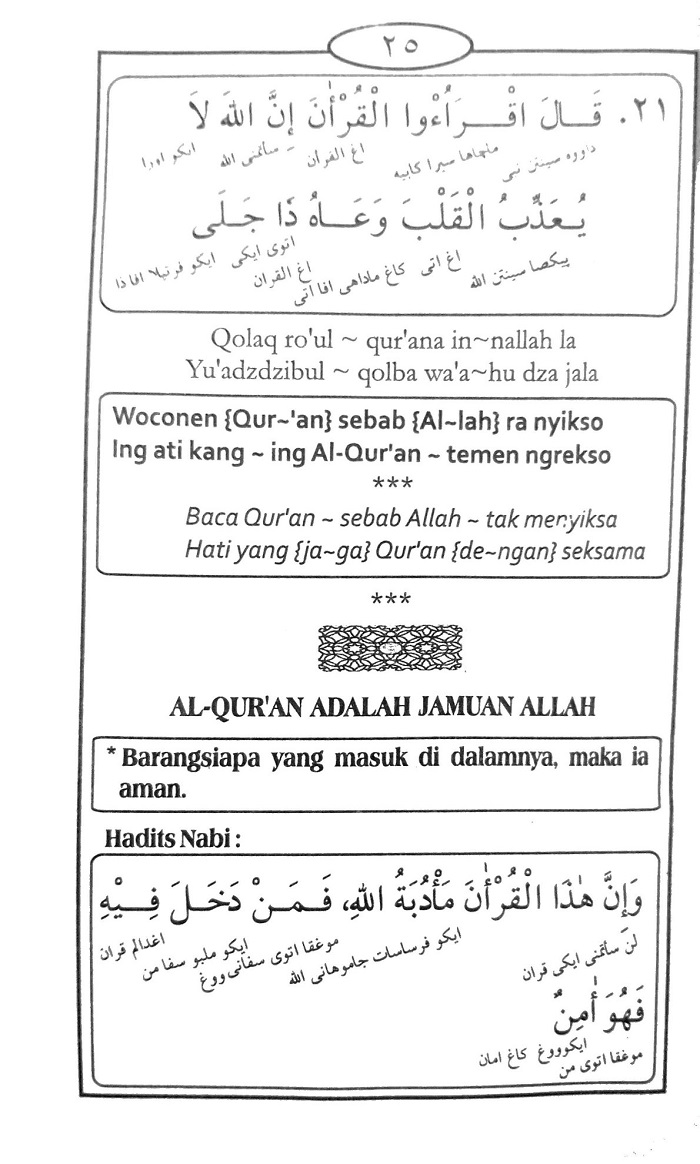 ٢٥
٢١. قَــالَ اقْــرَاُءْوا الْقُرْأٰنَ إِنَّ اللهَ لَا
داووه سينتن نبي مٚاچاها سيرا كابيه اغ القرآن - ساتمٚني الله ايكو اورا
يُعَذِّبُ الْقَلْبَ وَعَــاهُ ذَا جَلَى
پيكصا سينتن الله اغ اتي كاغ ماداهي افا اتي اغ القران اتوي ايكي ايكو فرتيلا افا ذا
Qolaq ro'ul ~ qur'ana in~nallah la
Yu'adzdzibul ~ qolba wa'a~hu dza jala
Woconen {Qur~'an} sebab {Al~lah} ra nyikso
Ing ati kang ~ ing Al-Qur'an ~ temen ngrekso
***
Baca Qur'an ~ sebab Allah ~ tak menyiksa
Hati yang {ja~ga} Qur'an {de~ngan} seksama
***
AL-QUR'AN ADALAH JAMUAN ALLAH
* Barangsiapa yang masuk di dalamnya, maka ia
aman.
Hadits Nabi :
وَإِنَّ هٰذَا الْقُرْأٰنَ مَأْدُبَةُ اللهِ، فَـمَـنْ دَخَـلَ فِـيْهِ
لن ساتمني ايكي قران ايكو فرساسات جاموهاني الله موغقا اتوي سفاني ووغ ايكو ملبو سفا من اغدالم قران
فَهُوَ أٰمِنٌ
موغقا اتوي من ايكو ووغ كاغ امان